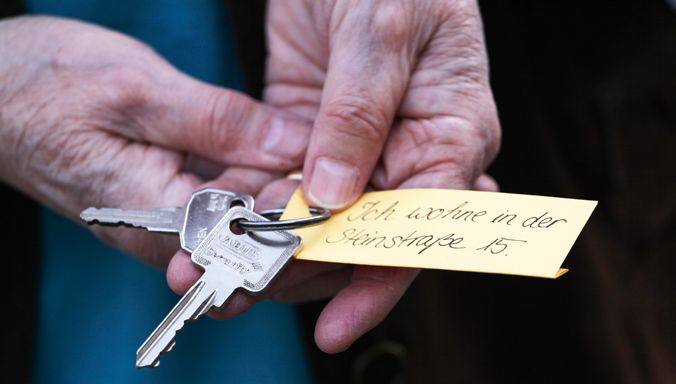 Ich wohne in der
Steinstraße 15.
Security